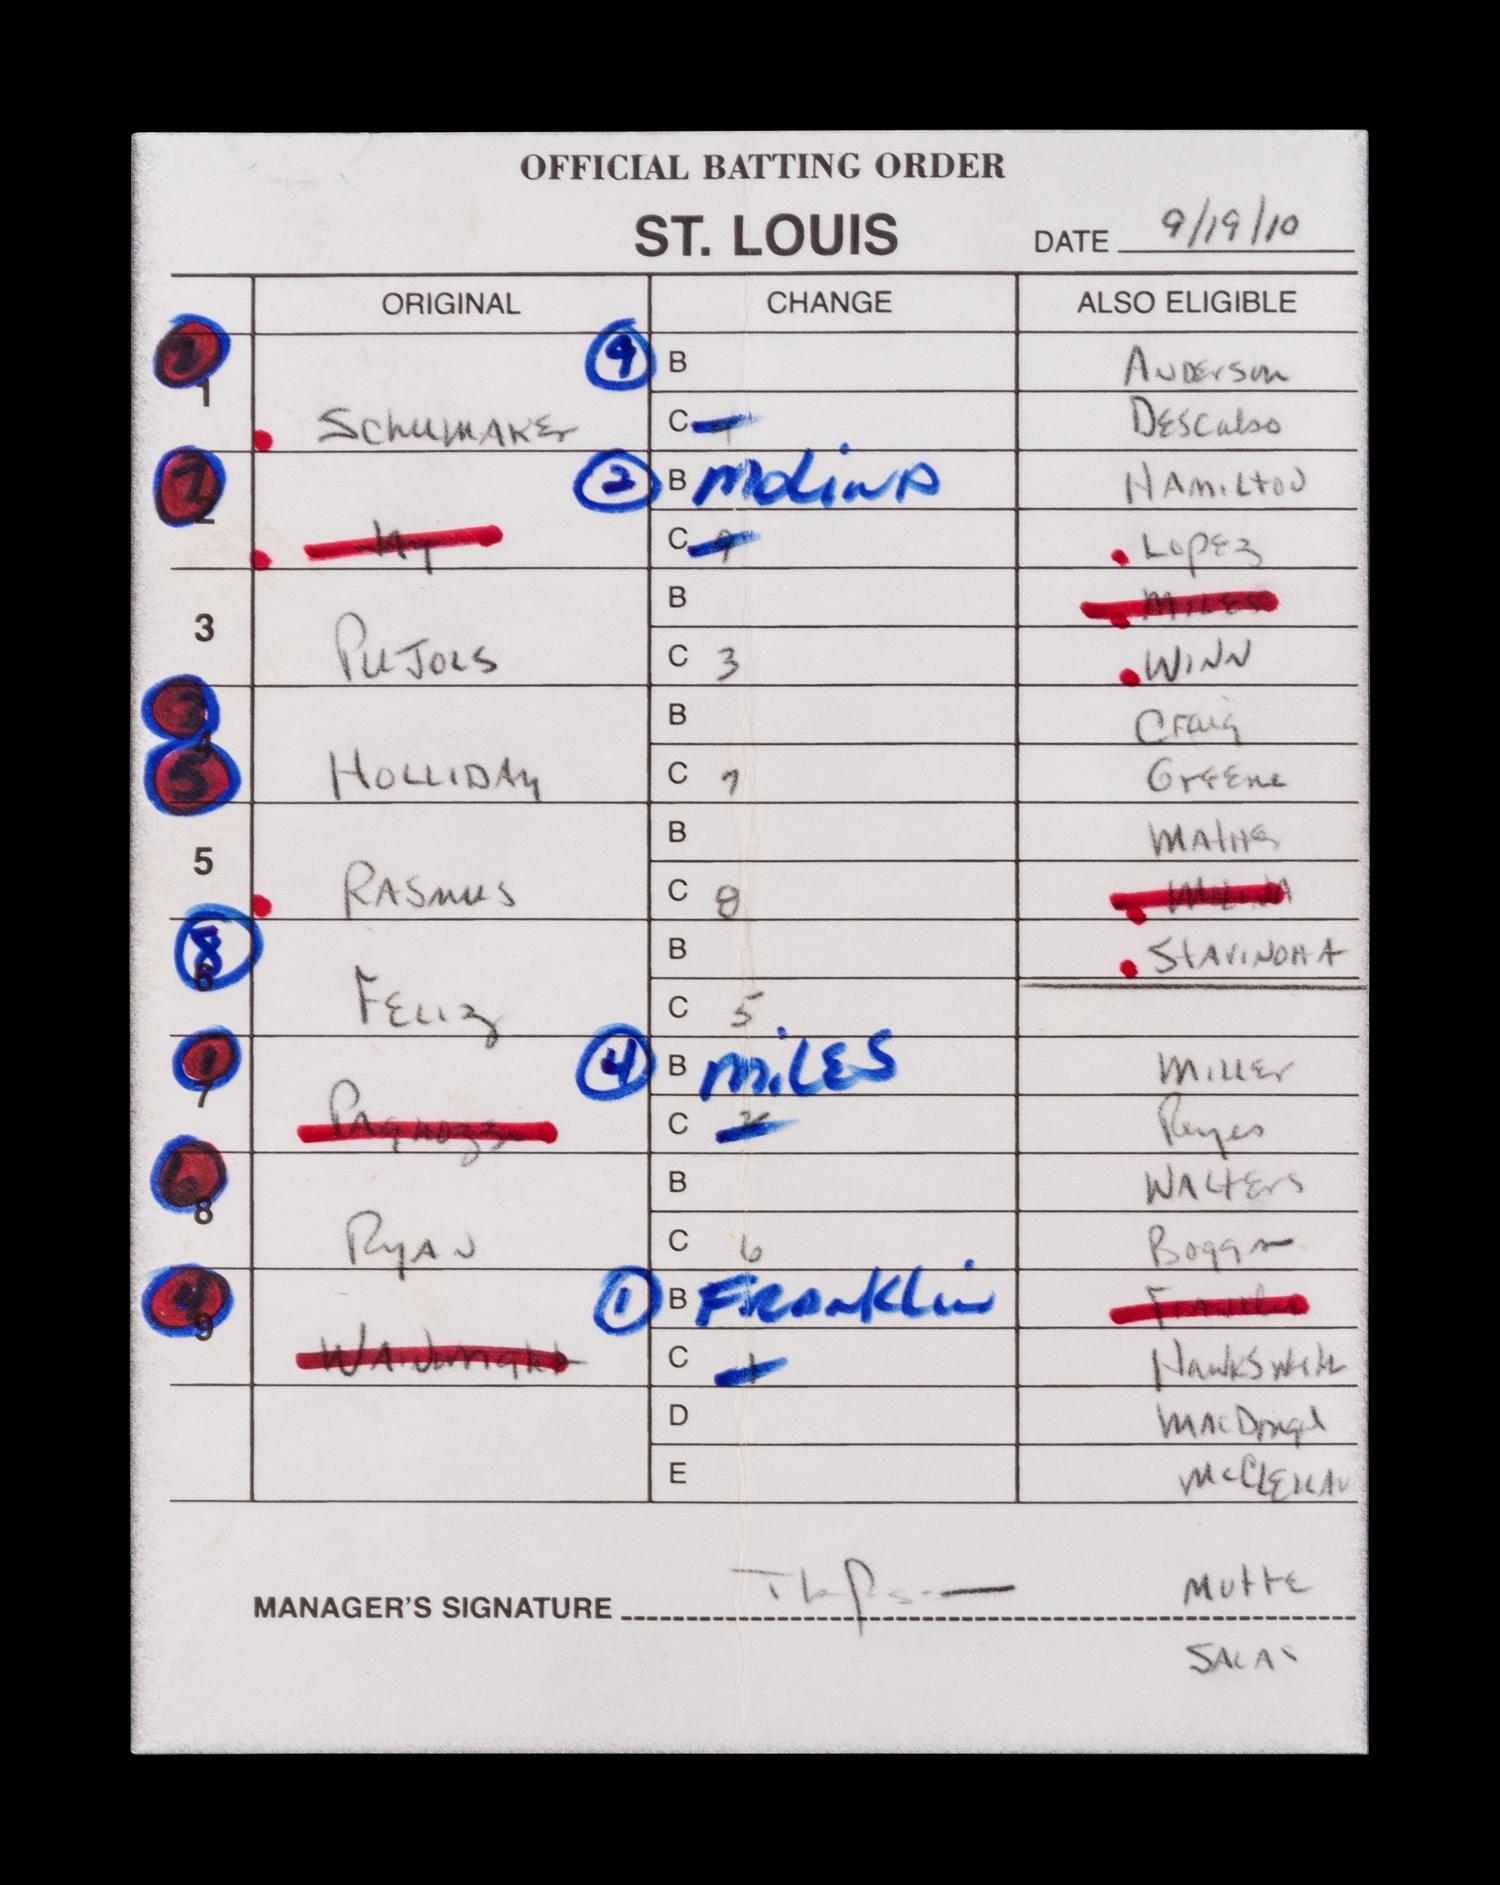 OFFICIAL BATTING ORDER
ST. LOUIS
DATE 9/19/10
ORIGINAL CHANGE ALSO ELIGIBLE
1 SCHUMAKER 9 B ANDERSON
C DESCALSO
2 JAY 2 B MOLINA HAMILTON
C 9 LOPEZ
3 PUJOLS B MILES
C 3 WINN
4 HOLLIDAY B CRAIG
5 C 7 GREENE
5 RASMUS B MATHER
C 8 MOLINA
8 6 FELIZ B STAVINOHA
C 5
1 7 PAGNOZZI 4 B MILES MILLER
C 2 REYES
6 8 RYAN B WALTERS
C 6 BOGGS
4 9 WAINWRIGHT 1 B FRANKLIN FRANKLIN
C 1 HAWKSWORTH
D MACDOUGAL
E MCCLELLAN
MANAGER'S SIGNATURE MOTTE
SALAS